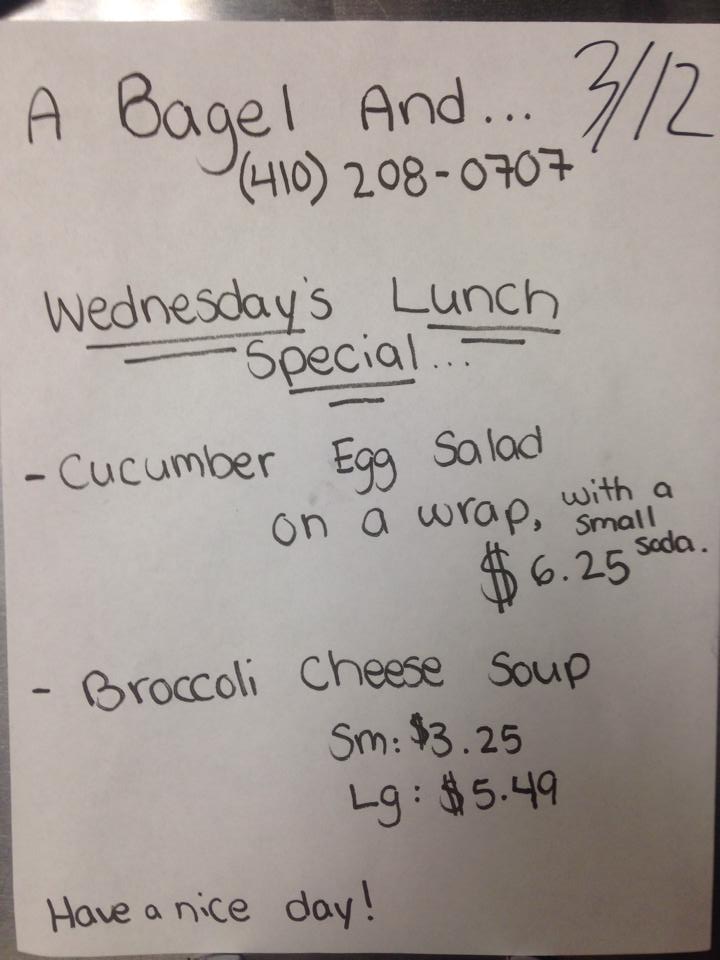 A Bagel And... 3/12
(410) 208-0707
Wednesday's Lunch
Special...
- Cucumber Egg Salad
on a wrap, with a
small
soda.
$6.25
- Broccoli Cheese Soup
Sm: $3.25
Lg: $5.49
Have a nice day!